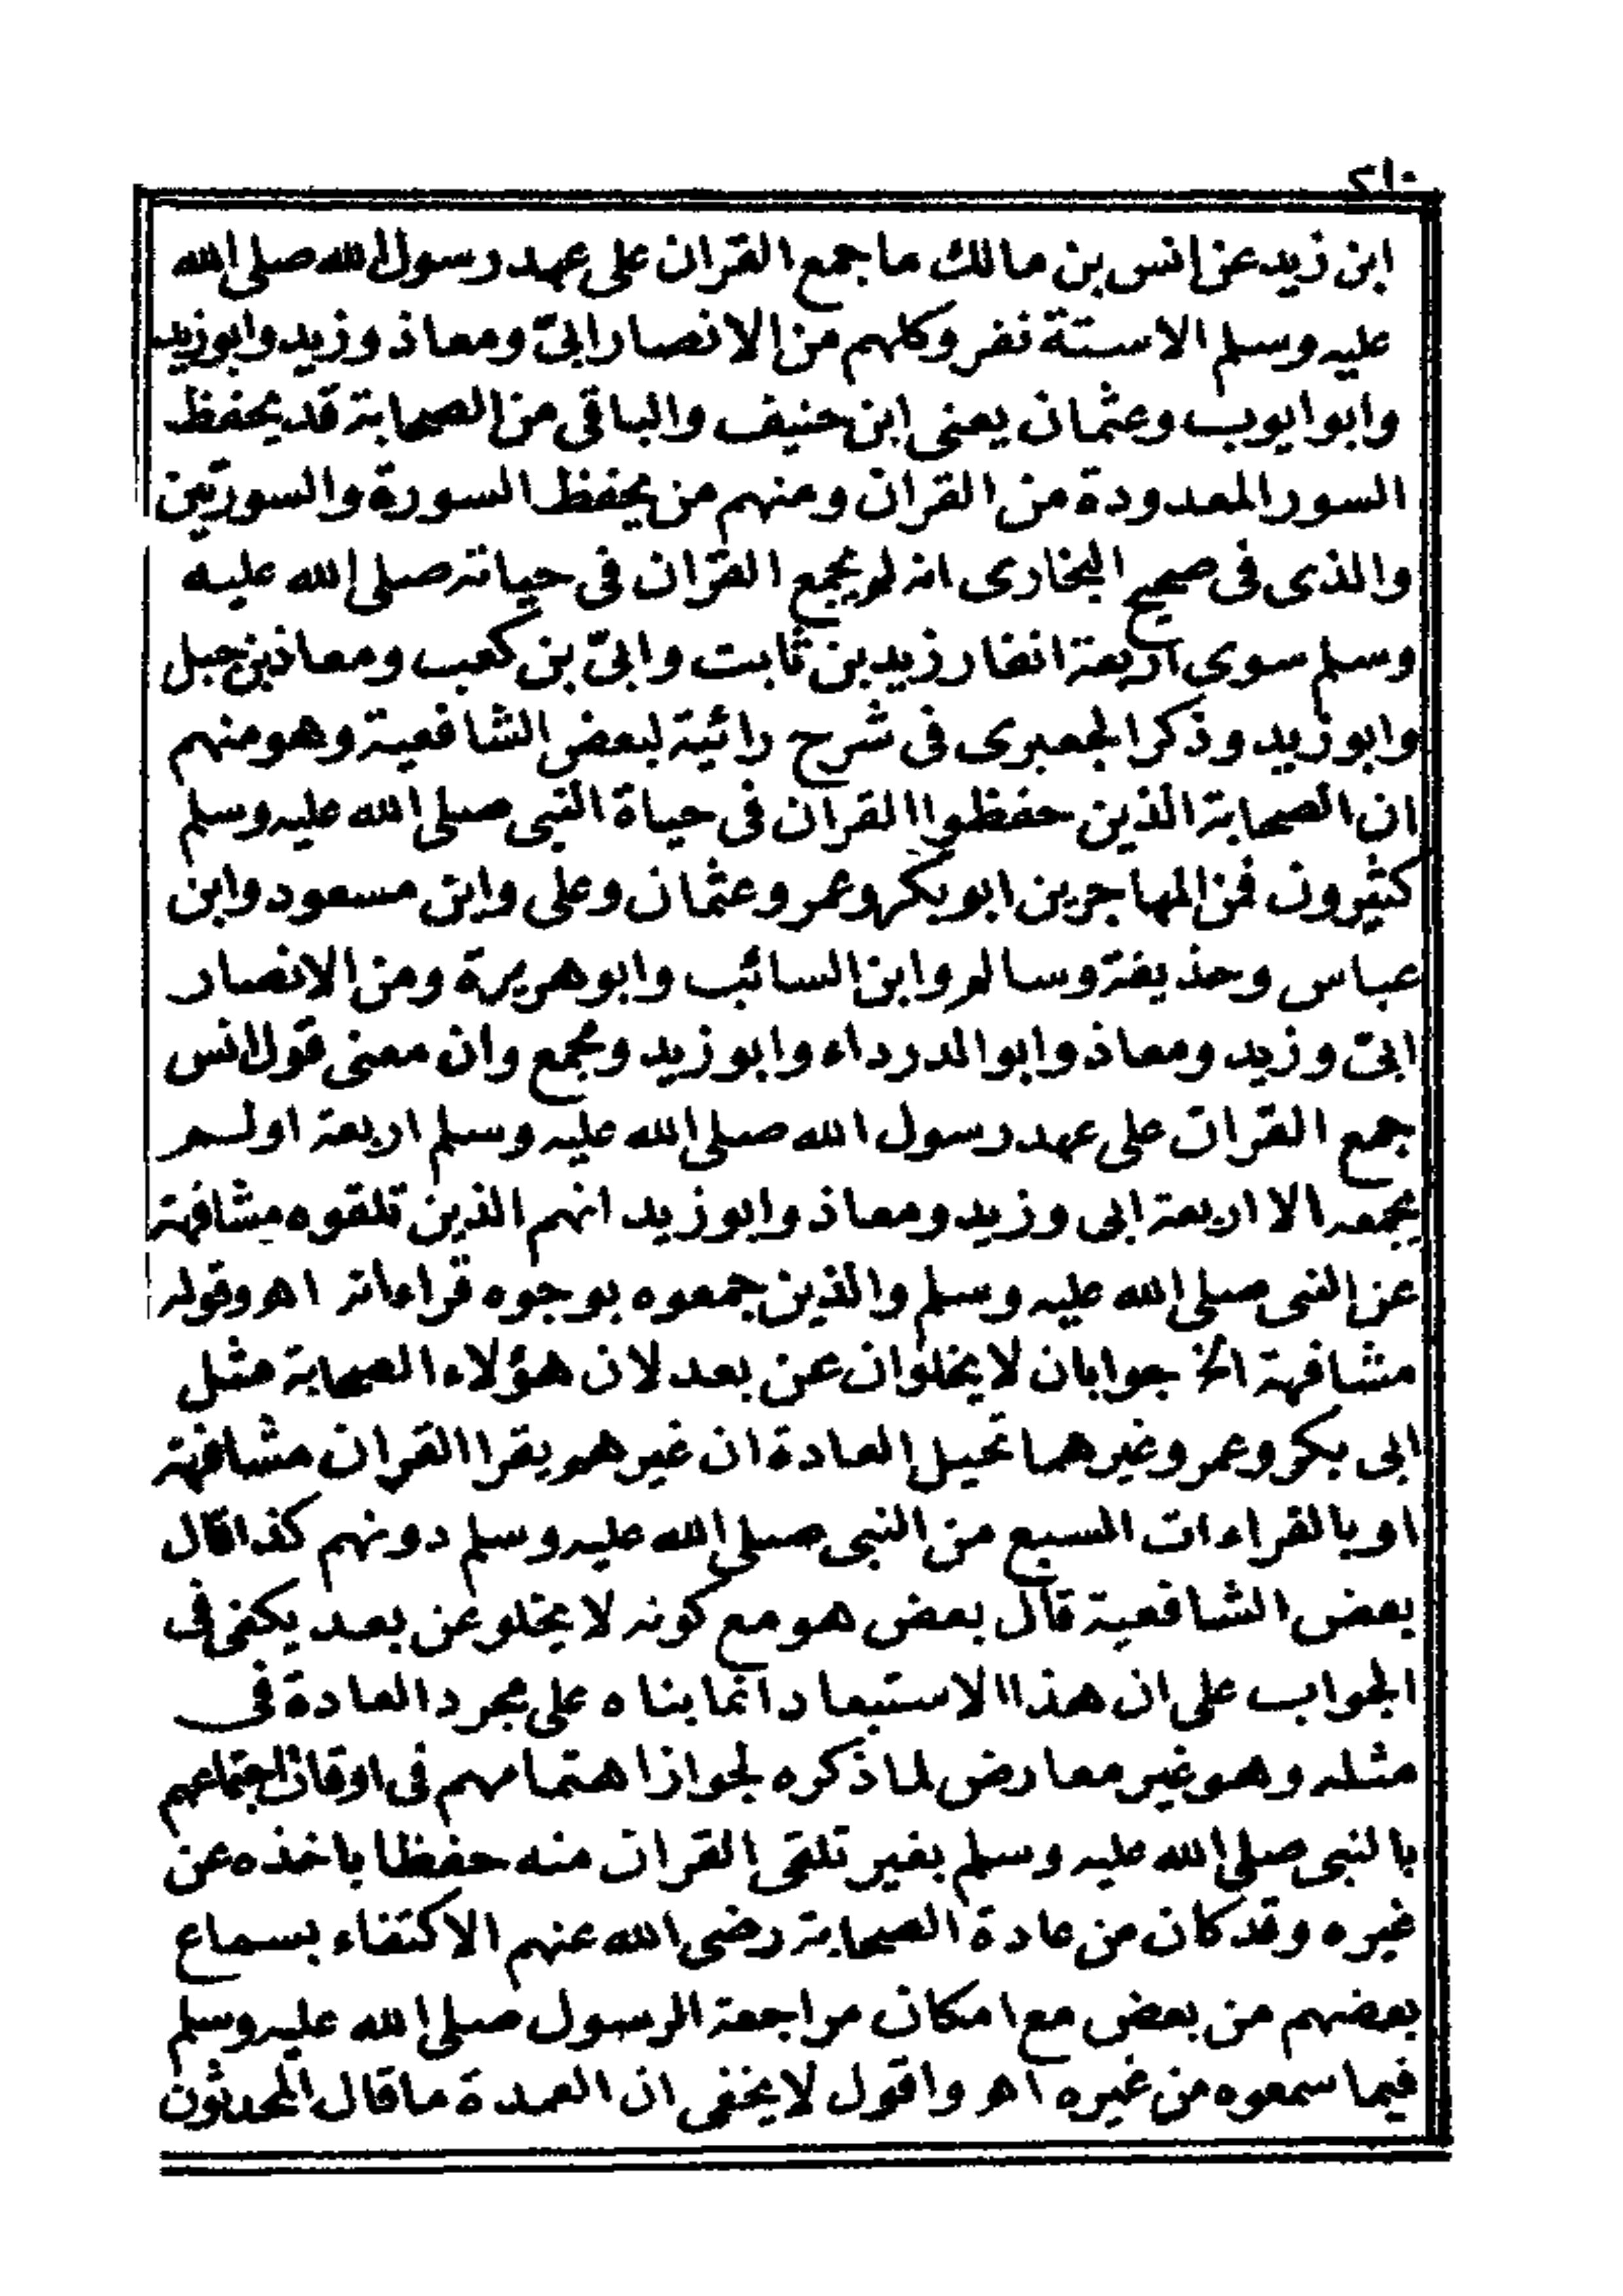 ابن زيد عن انس بن مالك ما جمع القران على عهد رسول الله صلى الله
عليه وسلم الا ستة نفر وكلهم من الانصار ابىّ ومعاذ وزيد وابو زيد
وابو ايوب وعثمان يعنى ابن حنيف والباقى من الصحابة قد يحفظ
السور المعدودة من القران ومنهم من يحفظ السورة والسورتين
والذى فى صحيح البخارى انه لم يجمع القران فى حياته صلى الله عليه
وسلم سوى اربعة انفار زيد بن ثابت وابىّ بن كعب ومعاذ بن جبل
وابو زيد وذكر الجعبرى فى شرح رائية لبعض الشافعية وهو منهم
ان الصحابة الذين حفظوا القران فى حياة النبى صلى الله عليه وسلم
كثيرون فمن المهاجرين ابو بكر وعمر وعثمان وعلى وابن مسعود وابن
عباس وحذيفة وسالم وابن السائب وابو هريرة ومن الانصار
ابىّ وزيد ومعاذ وابو الدرداء وابو زيد ومجمع وان معنى قول انس
جمع القران على عهد رسول الله صلى الله عليه وسلم اربعة او لم
يجمعه الا اربعة ابى وزيد ومعاذ وابو زيد انهم الذين تلقوه مشافهة
عن النبى صلى الله عليه وسلم والذين جمعوه بوجوه قراءاته اه وقوله
مشافهة الخ جوابان لا يخلوان عن بعد لان هؤلاء الصحابة مثل
ابى بكر وعمر وغيرهما تحيل العادة ان غيرهم يقرا القران مشافهة
او بالقراءات السبع من النبى صلى الله عليه وسلم دونهم كذا قال
بعض الشافعية قال بعض هو مع كونه لا يخلو عن بعد يكفى فى
الجواب على ان هذا الاستبعاد انما بناه على مجرد العادة فى
مثله وهو غير معارض لما ذكره لجواز اهتمامهم فى اوقات اجتماعهم
بالنبى صلى الله عليه وسلم بغير تلقى القران منه حفظا باخذه عن
غيره وقد كان من عادة الصحابة رضى الله عنهم الاكتفاء بسماع
بعضهم من بعض مع امكان مراجعة الرسول صلى الله عليه وسلم
فيما سمعوه من غيره اه واقول لا يخفى ان العمدة ما قال المحدثون